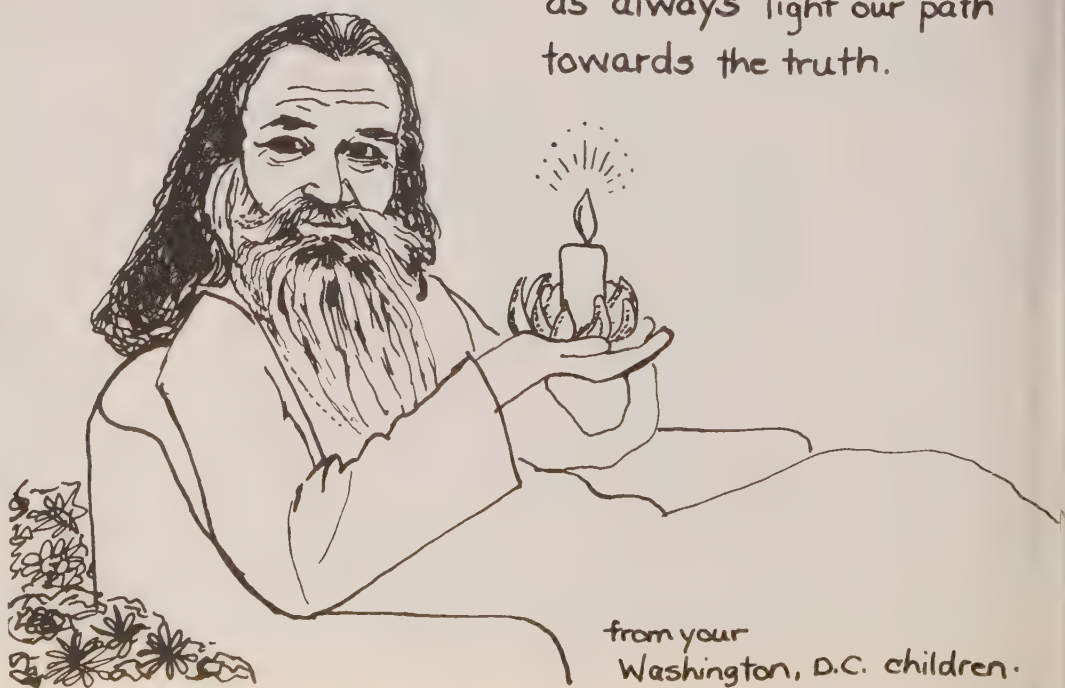 as always light our path
towards the truth.
from your
Washington, D.C. children.